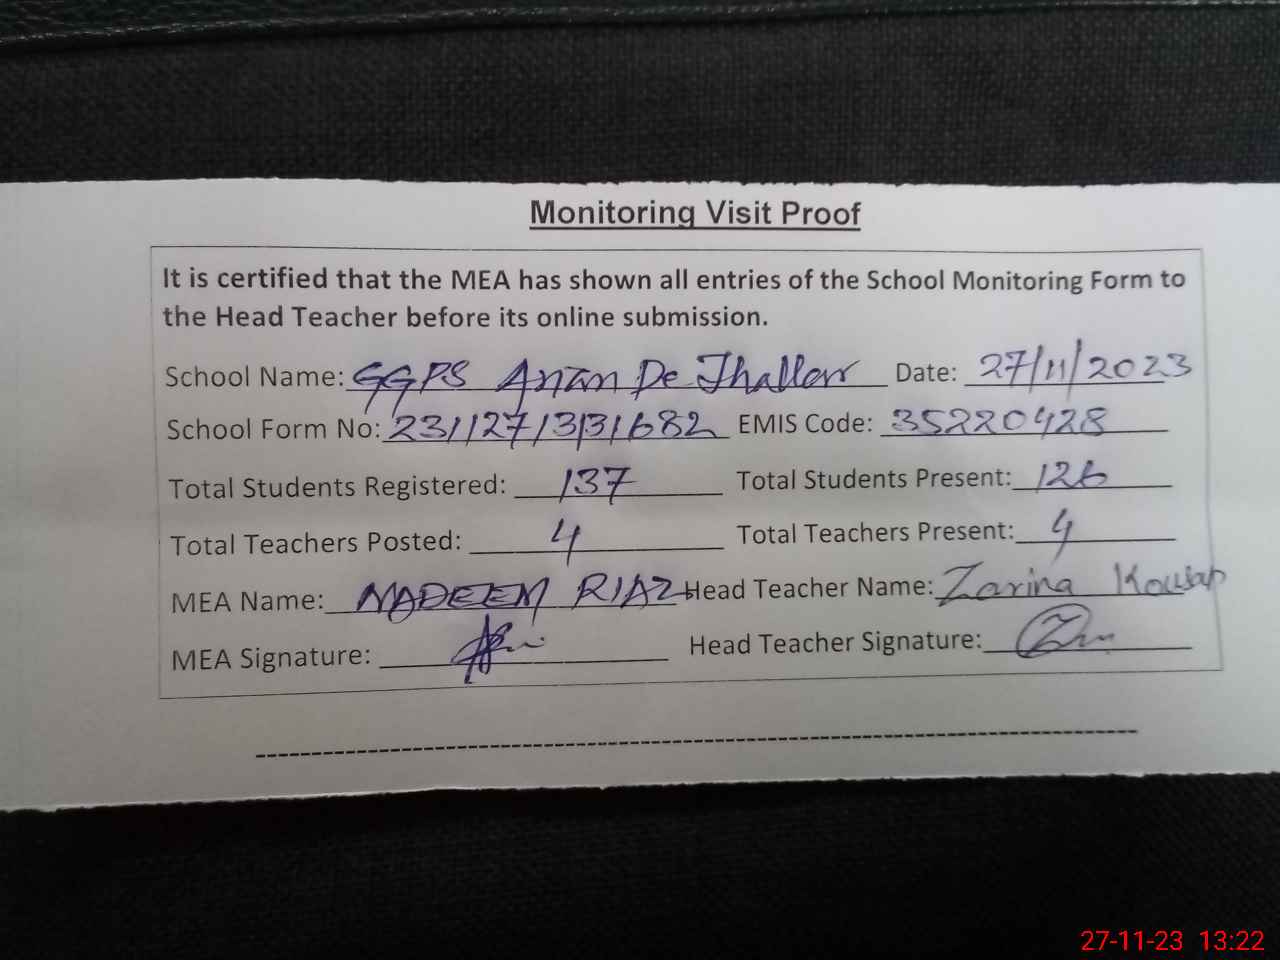 Monitoring Visit Proof
It is certified that the MEA has shown all entries of the School Monitoring Form to
the Head Teacher before its online submission.
School Name: GGPS Arian De Thallar Date: 27/11/2023
School Form No: 231127/3131682 EMIS Code: 35220428
Total Students Registered: 137 Total Students Present: 126
Total Teachers Posted: 4 Total Teachers Present: 4
MEA Name: NADEEM RIAZ Head Teacher Name: Zarina Kousar
MEA Signature: Head Teacher Signature:
27-11-23 13:22